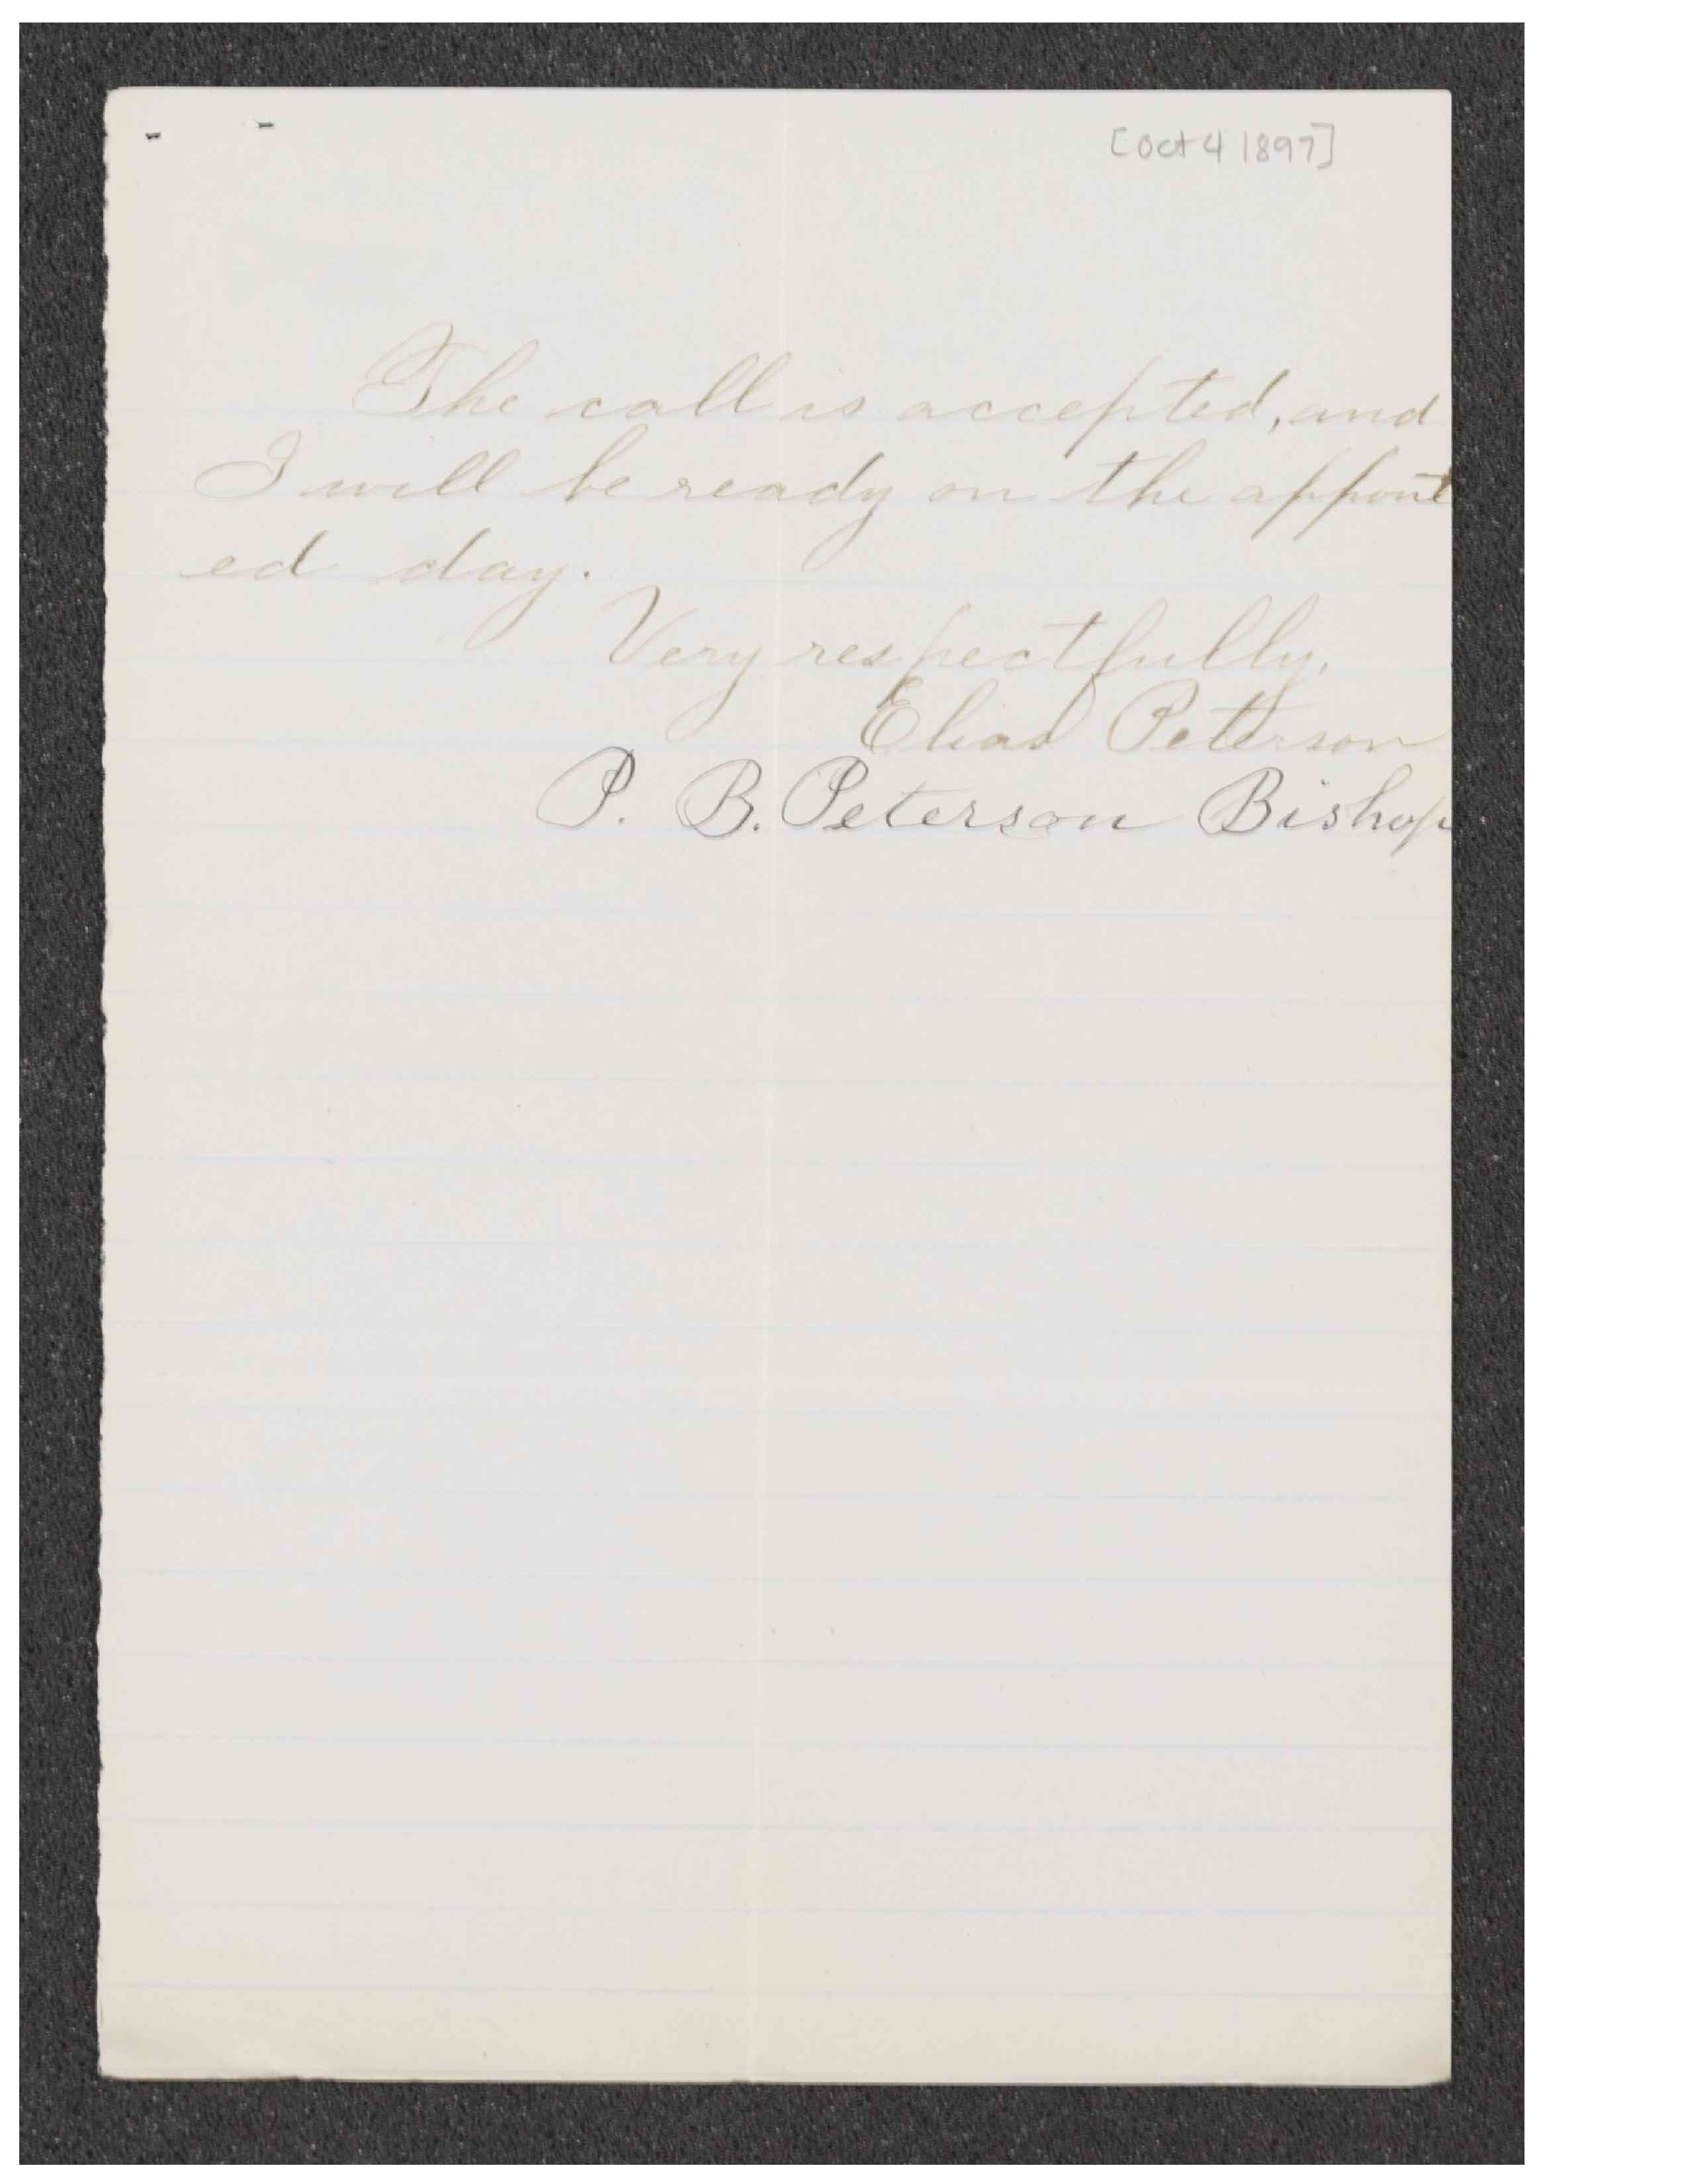 [Oct 4 1897]
The call is accepted, and
I will be ready on the appoint
ed day.
Very respectfully,
Elias Peterson
P. B. Peterson Bishop